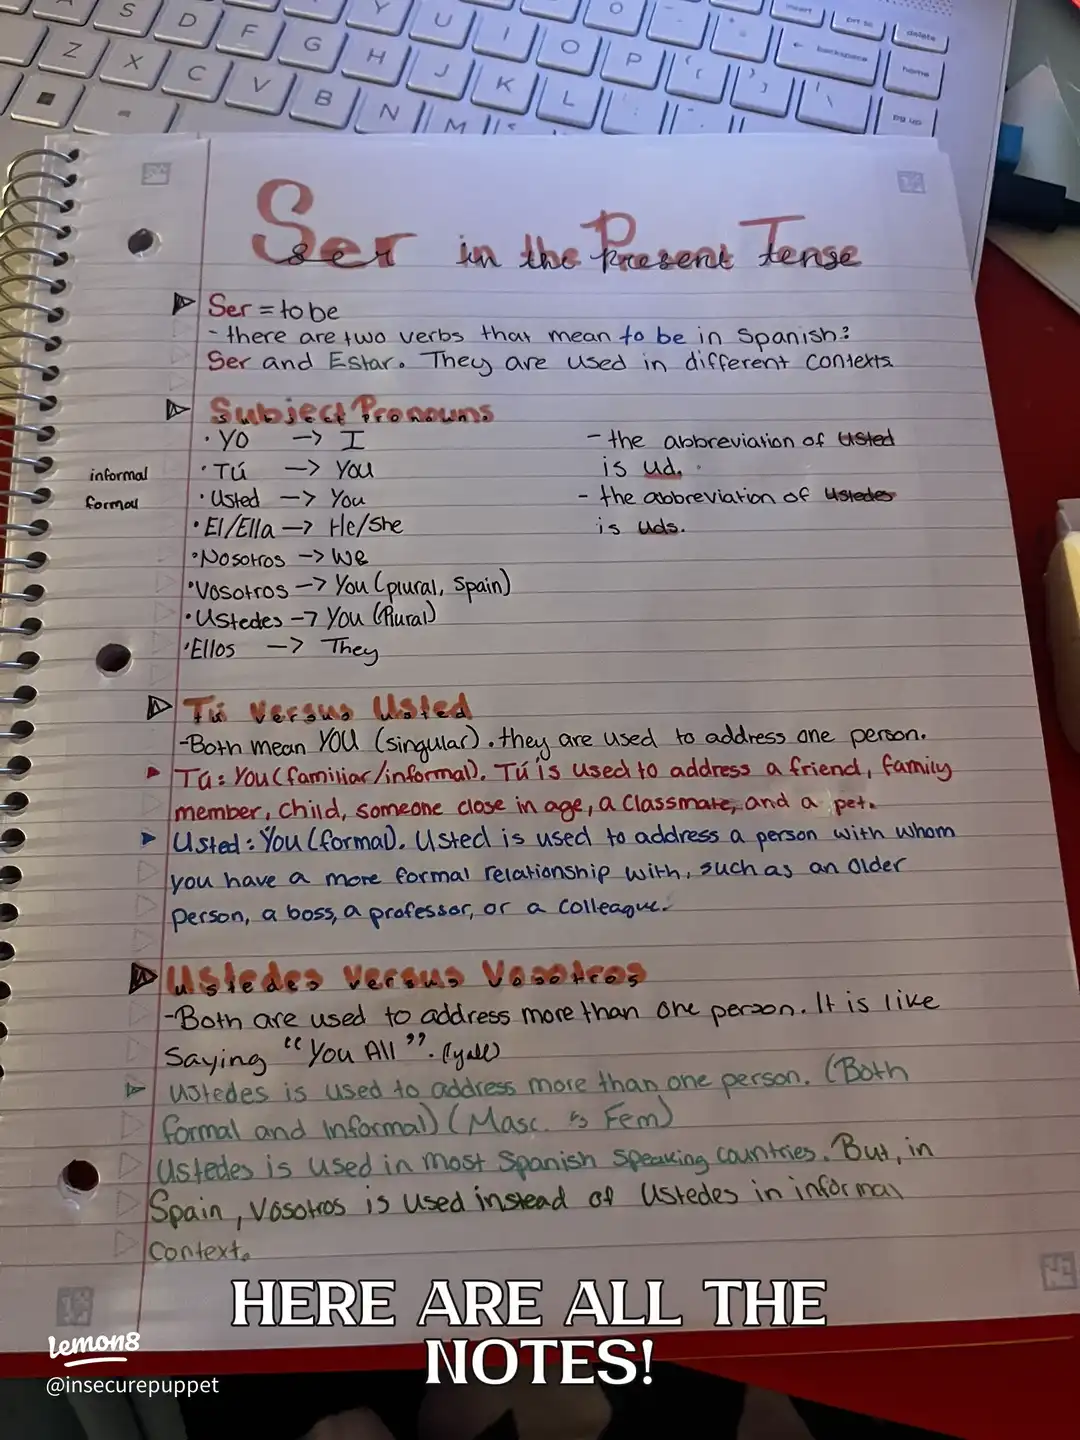 S D F G H J K L
Z X C V B N M
Y U I O P
insert
prt sc
delete
backspace
home
pg up
Ser in the Present Tense
Ser = to be
- there are two verbs that mean to be in Spanish:
Ser and Estar. They are used in different contexts.
Subject Pronouns
· Yo —> I
- the abbreviation of usted
informal
· Tú —> You
is ud.
formal
· Usted —> You
- the abbreviation of ustedes
· El/Ella —> He/She
is uds.
· Nosotros —> We
· Vosotros —> You (plural, Spain)
· Ustedes —> You (Plural)
· Ellos —> They
Tú versus Usted
- Both mean YOU (singular). they are used to address one person.
Tú: You (familiar/informal). Tú is used to address a friend, family
member, child, someone close in age, a classmate, and a pet.
Usted: You (formal). Usted is used to address a person with whom
you have a more formal relationship with, such as an older
person, a boss, a professor, or a colleague.
Ustedes versus Vosotros
- Both are used to address more than one person. It is like
Saying "You All". (yall)
Ustedes is used to address more than one person. (Both
formal and informal) (Masc. Fem)
Ustedes is used in most Spanish speaking countries. But, in
Spain, Vosotros is used instead of Ustedes in informal
context.
HERE ARE ALL THE
NOTES!
lemon8
@insecurepuppet